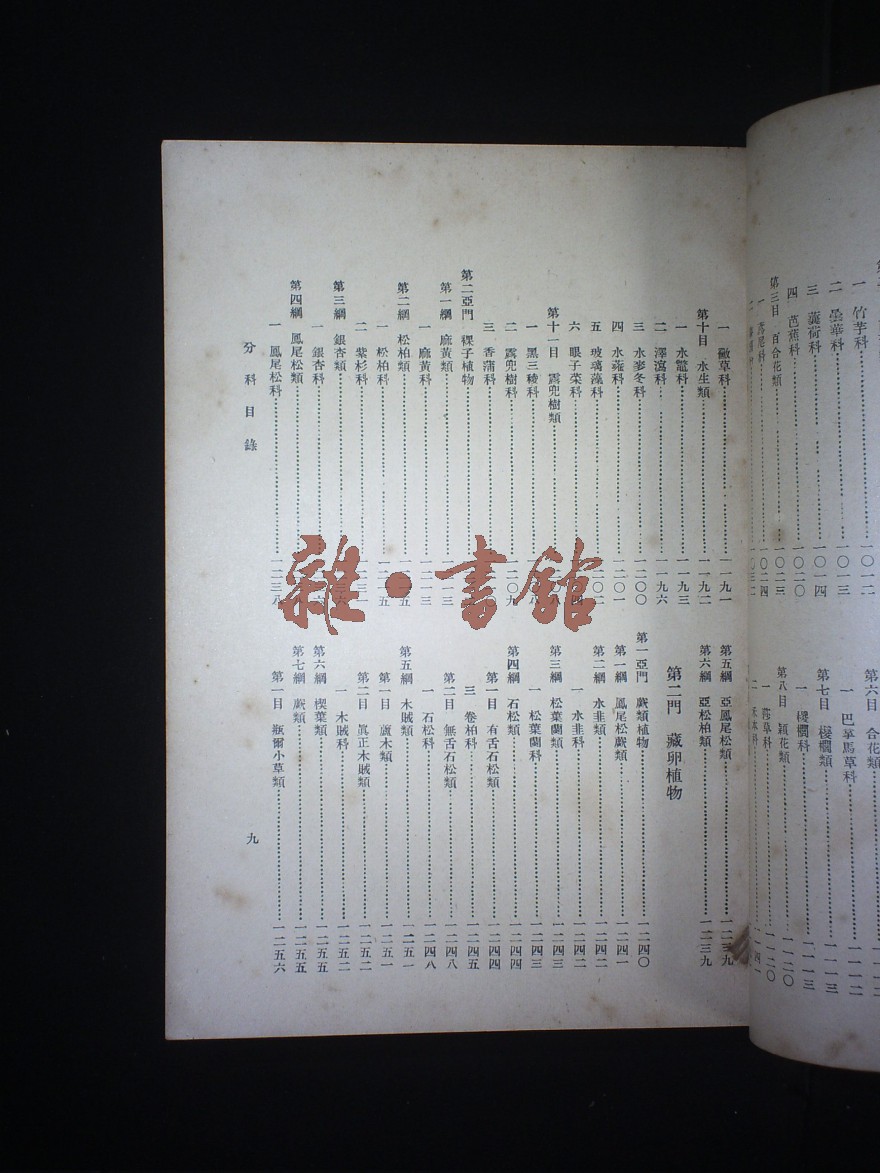 一 竹芋科……一〇一二
二 曇華科……一〇一三
三 蘘荷科……一〇一四
四 芭蕉科……一〇二〇
第三目 百合花類……一〇二三
一 鳶尾科……一〇二四
第六目 合花類……一一一二
一 巴拿馬草科……一一一三
第七目 椶櫚類……一一一三
一 椶櫚科……一一一三
第八目 穎花類……一一二〇
一 莎草科……一一二〇
二 禾本科……一一四一
一 黴草科……一一九一
第十目 水生類……一一九二
一 水鼈科……一一九三
二 澤瀉科……一一九六
三 水麥冬科……一二〇〇
四 水蕹科……一二〇一
五 玻璃藻科……一二〇二
六 眼子菜科
第十一目 露兜樹類
一 黑三稜科
二 露兜樹科……一二〇九
三 香蒲科
第二亞門 裸子植物
第一綱 麻黃類……一二一三
一 麻黃科……一二一三
第二綱 松柏類
一 松柏科
二 紫杉科
第三綱 銀杏類
一 銀杏科
第四綱 鳳尾松類
一 鳳尾松科……一二三八
第五綱 亞鳳尾松類……一二三九
第六綱 亞松柏類……一二三九
第二門 藏卵植物
第一亞門 蕨類植物……一二四〇
第一綱 鳳尾松蕨類……一二四一
第二綱 水韭類……一二四二
一 水韭科……一二四二
第三綱 松葉蘭類……一二四三
一 松葉蘭科……一二四三
第四綱 石松類……一二四四
第一目 有舌石松類……一二四四
三 卷柏科……一二四五
第二目 無舌石松類……一二四八
一 石松科……一二四八
第五綱 木賊類……一二五一
第一目 蘆木類……一二五一
第二目 眞正木賊類……一二五二
一 木賊科……一二五二
第六綱 楔葉類……一二五五
第七綱 蕨類……一二五五
第一目 瓶爾小草類……一二五六
分科目錄
九
雜·書館